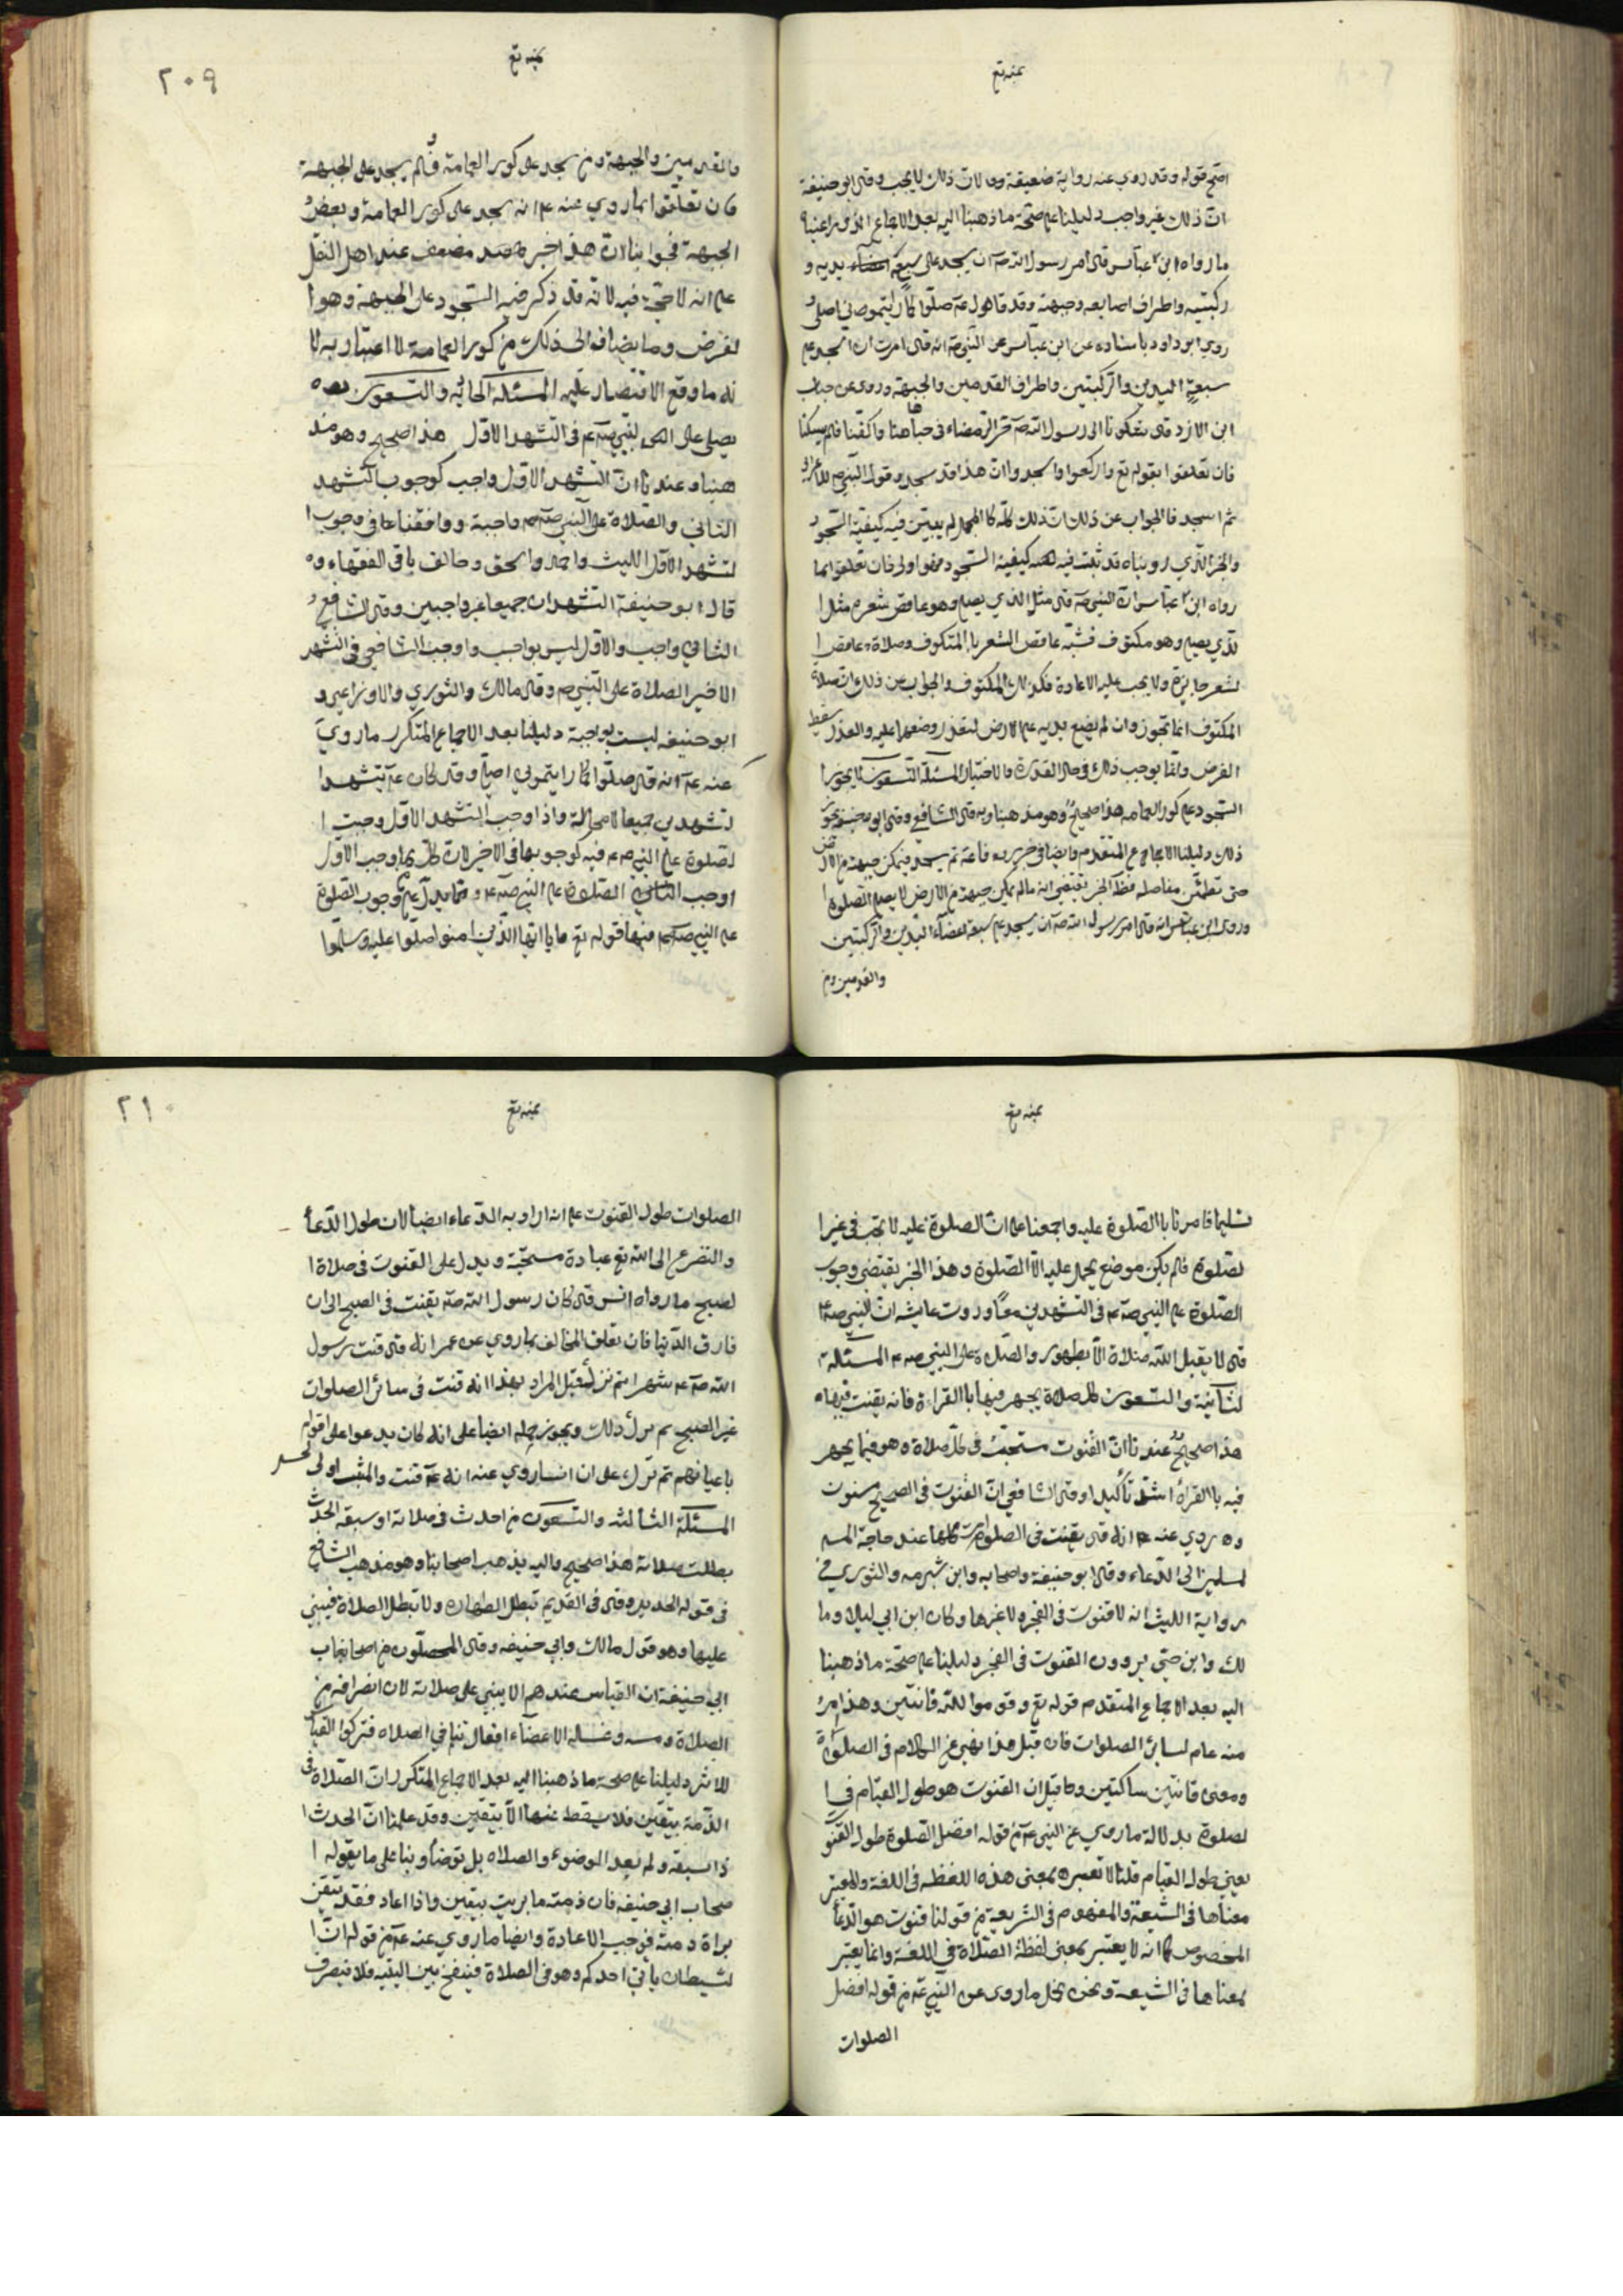 بمنه تع
اصح قوله وقد روي عنه رواية ضعيفة ان ذلك لا يجب وقال ابو حنيفة
ان ذلك غير واجب دليلنا على صحة ما ذهبنا اليه بعد الاجماع الذي
ما رواه ابن عباس قال امر رسول الله صه ان يسجد على سبعة يديه و
ركبتيه واطراف اصابعه وجبهته وقد قال صلوا كما رايتموني اصلي و
روي ابو داود باسناده عن ابن عباس عن النبي صه انه قال امرت ان اسجد على
سبعة اليدين والركبتين واطراف القدمين والجبهة وروى عن خباب
ابن الارت قال شكونا الى رسول الله صه حر الرمضاء في جباهنا واكفنا فلم يشكنا
فان تعلقوا بقوله تع واركعوا واسجدوا وان هذا قد سجد وقول النبي صم للاعرابي
ثم اسجد فالجواب عن ذلك ان ذلك كله كالمجمل لم يبين فيه كيفية السجود
والخبر الذي رويناه قد ثبت فيه كيفية السجود فهو اولى فان تعلقوا بما
رواه ابن عباس ان النبي صه قال مثل الذي يصلي وهو عاقص شعره مثل ا
لذي يصلي وهو مكتوف فشبه عاقص الشعر بالمكتوف وصلاة عاقص ا
لشعر جايزة ولا يجب عليه الاعادة فكذلك المكتوف والجواب عن ذلك ان صلاة
المكتوف انما تجوز وان لم يضع يديه على الارض لتعذر وضعهما عليه والعذر يسقط
الفرض وانما نوجب ذلك في حال القدرة والاختيار المسئلة التسعون لا يجوز ا
السجود على كور العمامه هذا صحيح وهو مذهبنا وبه قال الشافعي وقال ابو حنيفة يجوز
ذلك دليلنا الاجماع المتقدم وايضا في خبر رفاعة ثم يسجد فيمكن جبهته من الارض
حتى تطمئن مفاصله فظاهر الخبر يقتضي انه ما لم يمكن جبهته من الارض لا يصح الصلوة ا
وروى ابن عباس انه قال امر رسول الله صه ان يسجد على سبعة اعضاء اليدين والركبتين
والقدمين ومن
بمنه تع
٢٠٩
والقدمين والجبهة ومن سجد على كور العمامة فلم يسجد على الجبهة
فان تعلقوا بما روي عنه عم انه سجد على كور العمامة وبعض
الجبهة فجوابنا ان هذا خبر مضعف عند اهل النقل
على انه لا حجة فيه لانه قد ذكر فيه السجود على الجبهة وهو ا
لفرض وما يضاف الى ذلك من كور العمامة لا اعتبار به لا
نه ما وقع الاقتصار عليه المسئلة الحاديه والتسعون
يصلي على النبي صه عم في التشهد الاول هذا صحيح وهو مذ
هبنا وعندنا ان التشهد الاول واجب كوجوب التشهد
الثاني والصلاة على النبي صه عم واجبة ووافقنا على وجوب ا
لتشهد الاول الليث واحمد واسحق وخالف باقي الفقهاء و
قال ابو حنيفة التشهدان جميعا غير واجبين وقال الشافعي
الثاني واجب والاول ليس بواجب واوجب الشافعي في التشهد
الاخير الصلاة على النبي صم وقال مالك والثوري والاوزاعي و
ابو حنيفه ليست بواجبة دليلنا بعد الاجماع المتكرر ما روي
عنه عم انه قال صلوا كما رايتموني اصلي وقال كان عم يتشهد ا
لتشهدين جميعا لا محالة واذا وجب التشهد الاول وجبت ا
لصلوة على النبي صه عم فيه كوجوبها في الاخير لان كل من اوجب الاول
اوجب الثاني الصلوة على النبي صه عم ومما يدل على وجوب الصلوة
على النبي صه عم فيها قوله تع يا ايها الذين امنوا صلوا عليه وسلموا
بمنه تع
تسليما فامرنا بالصلوة عليه واجمعنا على ان الصلوة عليه لا تجب في غير ا
لصلوة فلم يكن موضع يحمل عليه الا الصلوة وهذا الخبر يقتضي وجوب
الصلوة على النبي صه عم في التشهدين معا وروت عايشه ان النبي صه عم
قال لا يقبل الله صلاة الا بطهور والصلاة على النبي صه عم المسئلة
لثانية والتسعون كل صلاة يجهر فيها بالقراءة فانه يقنت فيها
هذا صحيح عندنا ان القنوت مستحب في كل صلاة وهو فيما يجهر
فيه بالقراة اشد تاكيدا وقال الشافعي ان القنوت في الصبح مسنون
وروي عنه انه قال يقنت في الصلوات كلها عند حاجة المسـ
لمسلمين الى الدعاء وقال ابو حنيفة واصحابه وابن شبرمه والثوري في
رواية الليث انه لا قنوت في الفجر ولا غيرها وكان ابن ابي ليلا وما
لك وابن حي يرون القنوت في الفجر دليلنا على صحة ما ذهبنا
اليه بعد الاجماع المتقدم قوله تع وقوموا لله قانتين وهذا امر
منه عام لسائر الصلوات فان قيل هذا نهي عن الكلام في الصلوة
ومعنى قانتين ساكتين وقيل ان القنوت هو طول القيام في ا
لصلوة بدلالة ما روي عن النبي عم من قوله افضل الصلوة طول القنوت
يعني طول القيام قلنا لا نعتبر بمعنى هذه اللفظه في اللغة والمعتبر
معناها في الشيعة والمفهوم في الشريعة من قولنا قنوت هو الدعا
المخصوص كما انه لا يعتبر بمعنى لفظة الصلاة في اللغة وانما يعتبر
بمعناها في الشيعة ونحن نحمل ما روى عن النبي عم من قوله افضل
الصلوات
بمنه تع
٢١٠
الصلوات طول القنوت على انه اراد به الدعاء ايضا لان طول الدعا
والتضرع الى الله تع عبادة مستحبة ويدل على القنوت في صلاة ا
لصبح ما رواه انس قال كان رسول الله صه يقنت في الصبح الى ان
فارق الدنيا فان تعلق المخالف بما روي عن عمر انه قال قنت رسول
الله صه عم شهرا ثم ترك قيل المراد بهذا انه قنت في سائر الصلوات
غير الصبح ثم ترك ذلك ويجوز حمله ايضا على انه كان يدعوا على اقوام
باعيانهم ثم ترك على ان انسا روي عنه انه عم قنت والمثبت اولى
المسئلة الثالثه والتسعون من احدث في صلاته او سبقه الحدث
بطلت صلاته هذا صحيح واليه يذهب اصحابنا وهو مذهب الشافعي
في قوله الجديد وقال في القديم تبطل الطهارة ولا تبطل الصلاة فيبني
عليها وهو قول مالك وابي حنيفه وقال المحصلون من اصحاب
ابي حنيفة ان القياس عندهم الا يبني على صلاته لان انصرافه من
الصلاة ومسه وغسله الاعضاء افعال تنافي الصلاه فتركوا القياس
للاثر دليلنا على صحة ما ذهبنا اليه بعد الاجماع المتكرر ان الصلاة في
الذمة بيقين فلا يسقط عنها الا بيقين وقد علمنا ان الحدث ا
ذا سبقه ولم يعد الوضوء والصلاه بل توضا وبنا على ما يقوله ا
صحاب ابي حنيفه فان ذمته ما بريت بيقين واذا اعاد فقد تيقن
براة ذمته فوجب الاعادة وايضا ما روي عنه عم من قوله ان ا
لشيطان ياتي احدكم وهو في الصلاة فينفخ بين اليتيه فلا ينصرف